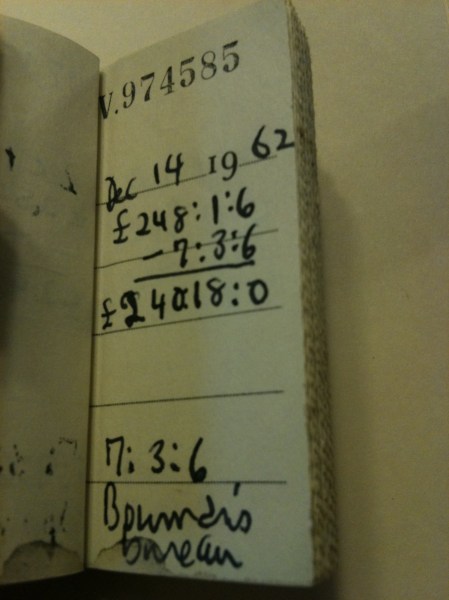 V.974585
Dec 14 1962
£248:1:6
-7:3:6
£240:18:0
7:3:6
bureau